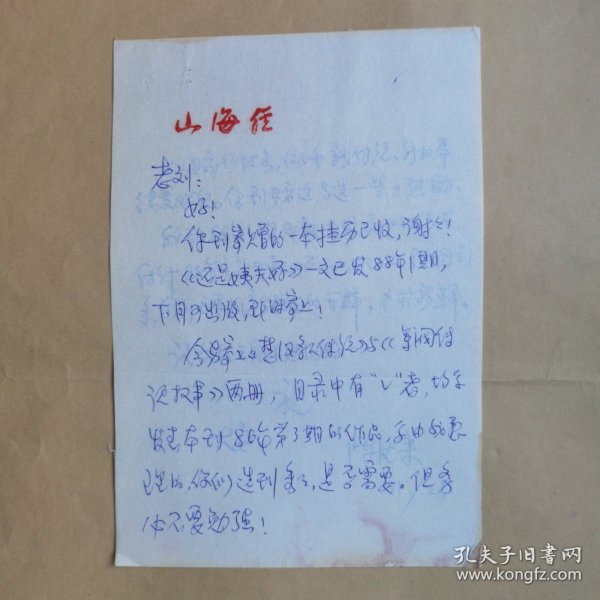 山海经
老刘：
好！
你刊寄赠的一本挂历已收，谢谢！
《还是姨夫好》一文已发88年1期，
下月可出版，到时寄上！
今另寄上《楚汉 传说》与《 传
说故事》两册，目录中有“√”者，均系
发表本刊86年第3期的作品，系由我整
理的，你们选刊 ，是否需要。但务
必不要勉强！
孔夫子旧书网
www.kongfz.com